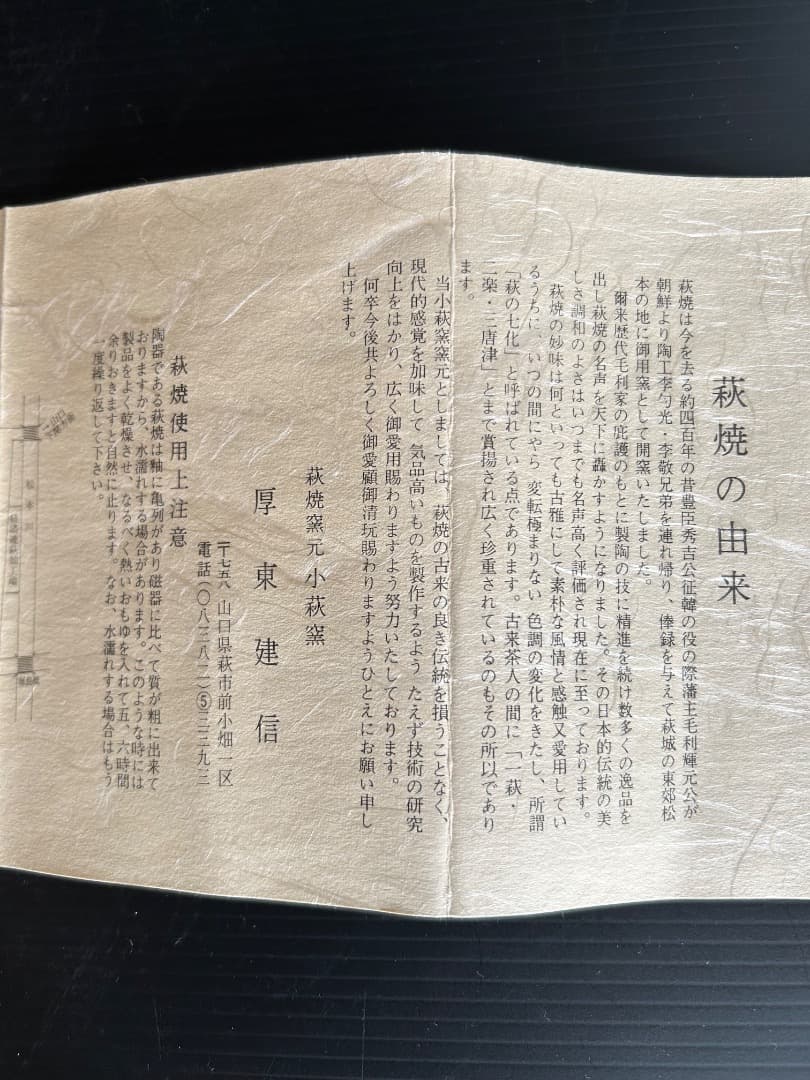 萩焼の由来
萩焼は今を去る約四百年の昔豊臣秀吉公征韓の役の際藩主毛利輝元公が
朝鮮より陶工李勺光・李敬兄弟を連れ帰り、俸録を与えて萩城の東郊松
本の地に御用窯として開窯いたしました。
爾来歴代毛利家の庇護のもとに製陶の技に精進を続け数多くの逸品を
出し萩焼の名声を天下に轟かすようになりました。その日本的伝統の美
しさ調和のよさはいつまでも名声高く評価され現在に至っております。
萩焼の妙味は何といっても古雅にして素朴な風情と感触又愛用してい
るうちに、いつの間にやら 変転極まりない 色調の変化をきたし、所謂
「萩の七化」と呼ばれている点であります。古来茶人の間に「一萩・
二楽・三唐津」とまで賞揚され広く珍重されているのもその所以であり
ます。
当小萩窯窯元としましては、萩焼の古来の良き伝統を損うことなく、
現代的感覚を加味して 気品高いものを製作するよう たえず技術の研究
向上をはかり、広く御愛用賜わりますよう努力いたしております。
何卒今後共よろしく御愛顧御清玩賜わりますようひとえにお願い申し
上げます。
萩焼窯元 小萩窯
厚東建信
〒七五八 山口県萩市前小畑一区
電話(〇八三八二)⑤三三九三
萩焼使用上注意
陶器である萩焼は釉に亀列があり磁器に比べて質が粗に出来て
おりますから、水濡れする場合があります。このような時には
製品をよく乾燥させ、なるべく熱いおもゆを入れて五、六時間
余りおきますと自然に止ります。なお、水濡れする場合はもう
一度繰り返して下さい。